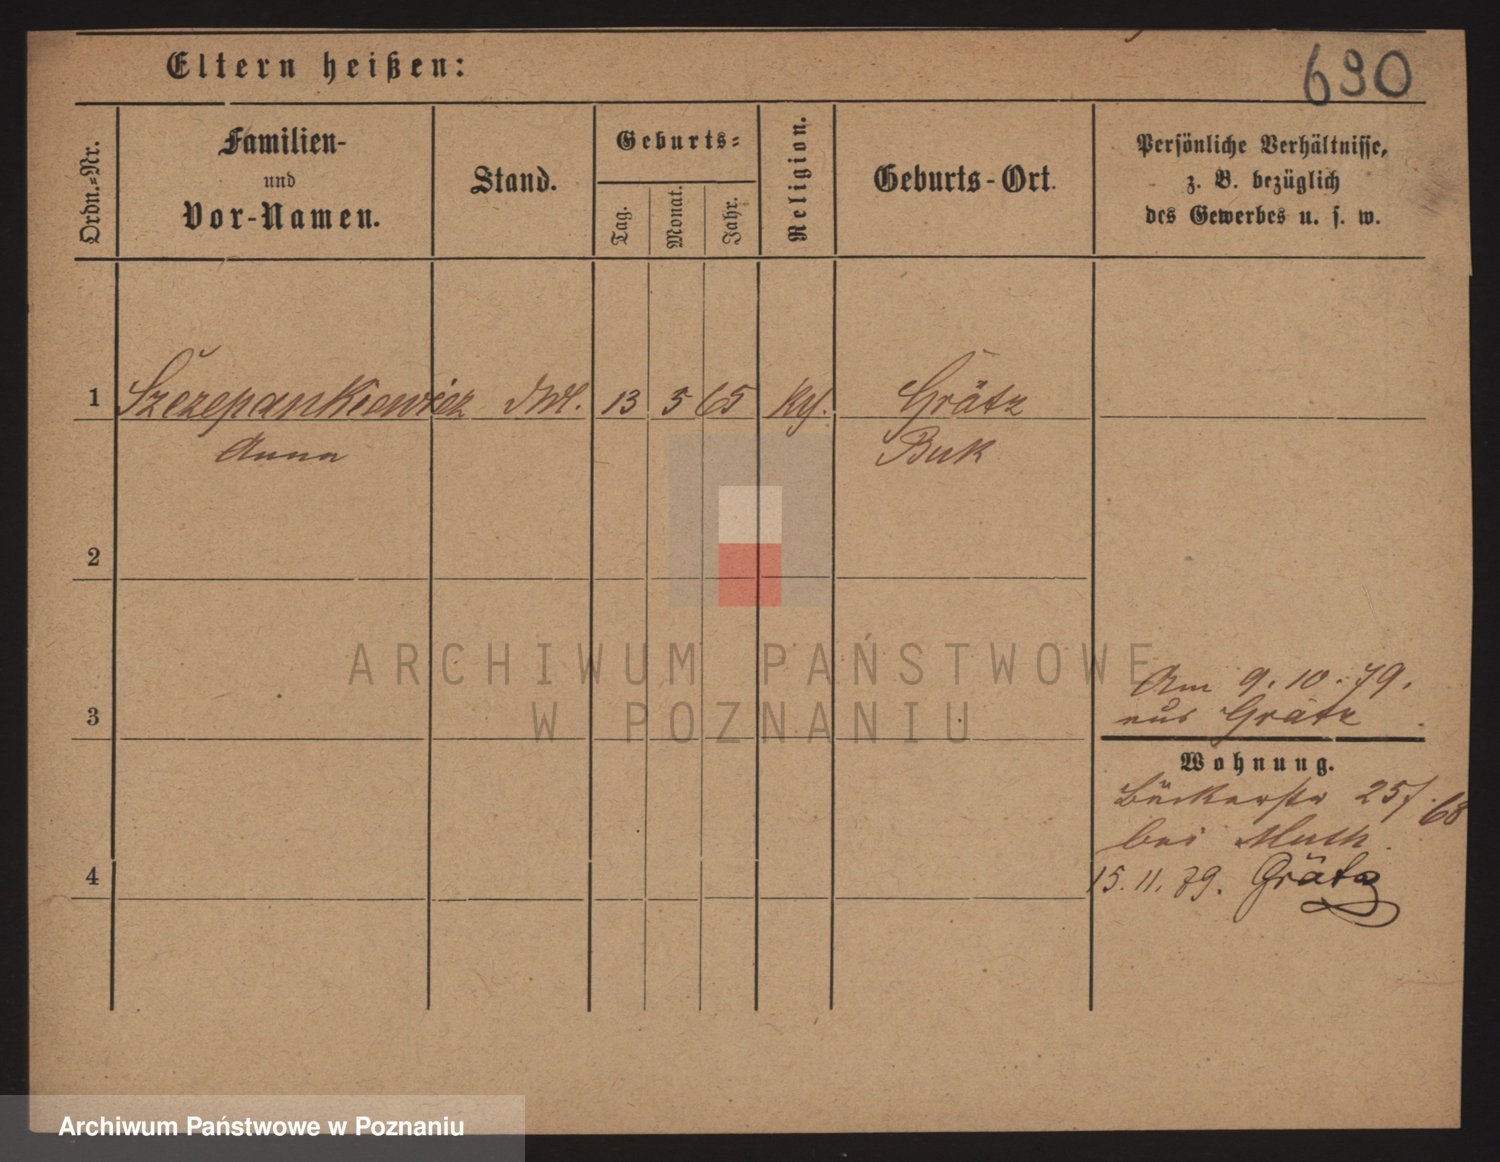 690
Eltern heißen:
Ordn.-Nr.
Familien-
und
Vor-Namen.
Stand.
Geburts-
Tag.
Monat.
Jahr.
Religion.
Geburts-Ort.
Persönliche Verhältnisse,
z. B. bezüglich
des Gewerbes u. s. w.
1 Szczepankiewicz 13 5 65 Grätz
Anna Buk
2
ARCHIWUM PAŃSTWOWE
W POZNANIU
Am 9. 10. 79.
3 aus Grätz
Wohnung.
Bäckerstr 25/68
bei Muth
4 15. 11. 79. Grätz
Archiwum Państwowe w Poznaniu